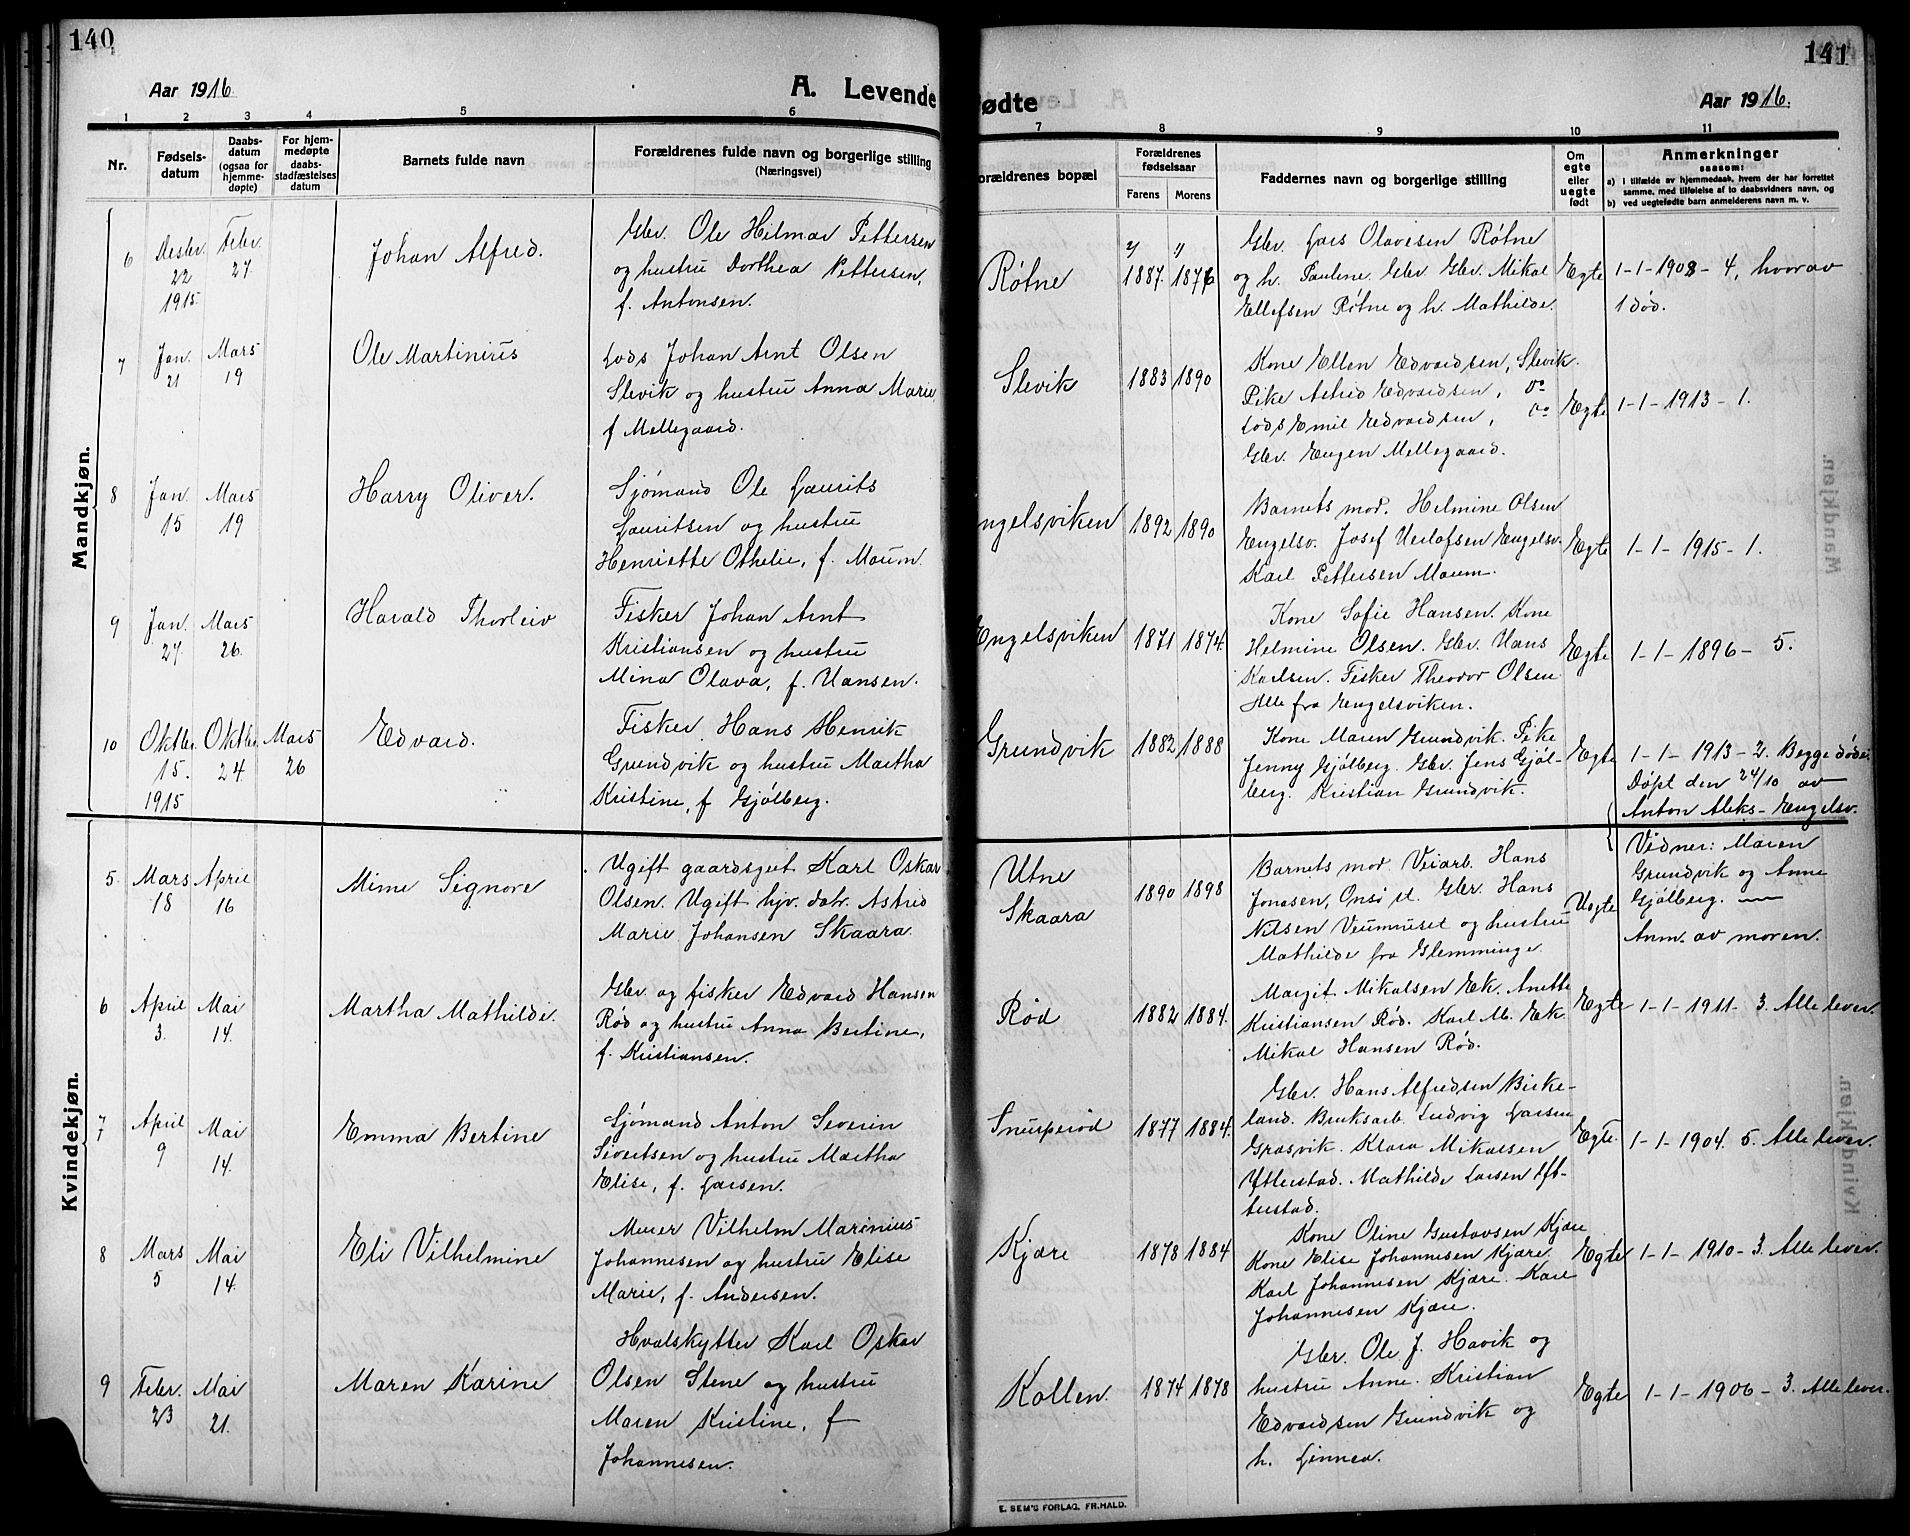 140
Aar 1916
A. Levende
1 2 3 4 5 6
Nr.
Fødsels-
datum
Daabs-
datum
(ogsaa for
hjemme-
døpte)
For hjem-
medøpte
daabs-
stadfæstelses
datum
Barnets fulde navn
Forældrenes fulde navn og borgerlige stilling
(Næringsvei)
Mandkjøn.
6
Desbr.
22
1915
Febr.
27
Johan Alfred.
Gbr. Ole Hilmar Pettersen
og hustru Dorthea Pettersen,
f. Antonsen.
7
Jan.
21
Mars
19
Ole Martinius
Lods Johan Arnt Olsen
Slevik og hustru Anna Marie
f Mellegaard.
8
Jan.
15
Mars
19
Harry Oliver.
Sjømand Ole Laurits
Lauritsen og hustru
Henriette Othelie, f. Maum.
9
Jan.
27.
Mars
26.
Harald Thorleiv
Fisker Johan Arnt
Kristiansen og hustru
Mina Olava, f. Hansen.
10
Oktbr.
15.
1915
Oktbr.
24
Mars
26
Edvard.
Fisker Hans Henrik
Grundvik og hustru Martha
Kristine, f Gjølberg.
Kvindekjøn.
5.
Mars
18
April
16
Mime Signore
Ugift gaardsgut Karl Oskar
Olsen. Ugift hjv. datr. Astrid
Marie Johansen Skaara.
6
April
3.
Mai
14.
Martha Mathilde.
Gbr. og fisker Edvard Hansen
Rød og hustru Anna Bertine,
f. Kristiansen.
7
April
9
Mai
14.
Emma Bertine
Sjømand Anton Severin
Sivertsen og hustru Martha
Elise, f. Larsen.
8
Mars
5
Mai
14.
Eli Vilhelmine
Murer Vilhelm Marinius
Johannesen og hustru Elise
Marie, f. Andersen.
9
Febr.
23
Mai
21.
Maren Karine
Hvalskytter Karl Oskar
Olsen Stene og hustru
Maren Kristine, f
Johannesen.
141
fødte
Aar 1916.
7 8 9 10 11
Forældrenes bopæl
Forældrenes
fødselsaar
Farens Morens
Faddernes navn og borgerlige stilling
Om
egte
eller
uegte
født
Anmerkninger
saasom:
a) i tilfælde av hjemmedaab, hvem der har forrettet
samme, med tilføielse af to daabsvidners navn, og
b) ved uegtefødte barn anmelderens navn m. v.
Røtne
1887. 1876
Gbr. Lars Olavesen Røtne
og h. Pauline. Gbr. Mikal
Ellefsen Røtne og h. Mathilde.
Egte
1-1-1908-4, hvorav
1 død.
Slevik
1883 1890
Kone Ellen Edvardsen, Slevik.
Pike Astrid Edvardsen, do
Lods Emil Edvardsen, do
Gbr. Eugen Mellegaard.
Egte
1-1-1913-1.
Engelsviken
1892 1890
Barnets mor. Helmine Olsen
Engelsv. Josef Edlefsen Engelsv.
Karl Pettersen Maum.
Egte
1-1-1915-1.
Engelsviken
1871 1874.
Kone Sofie Hansen. Kone
Helmine Olsen. Gbr. Hans
Karlsen. Fisker Theodor Olsen
Alle fra Engelsviken.
Egte
1-1-1896-5.
Grundvik
1882 1888
Kone Maren Grundvik. Pike
Jenny Gjølberg. Gbr. Jens Gjøl-
berg. Kristian Grundvik.
Egte
1-1-1913-2. Begge døde.
Døpt den 24/10 av
Anton Aleks- Engelsv.
Vidner: Maren
Grundvik og Anne
Gjølberg.
Utne
Skaara
1890 1898
Barnets mor. Veiarb. Hans
Jonasen, Onsø st. Gbr. Hans
Nilsen Veumhuset og hustru
Mathilde fra Glemminge.
Uegte
Anm. av moren.
Rød
1882 1884.
Margit Mikalsen Ek. Anette
Kristiansen Rød. Karl M. Ek.
Mikal Hansen Rød.
Egte
1-1-1911-3. Alle lever.
Snuperød
1877 1884.
Gbr. Hans Alfredsen Birke-
land. Bruksarb. Ludvig Larsen
Græsvik. Klara Mikalsen
Ytterstad. Mathilde Larsen Yt-
terstad.
Egte.
1-1-1904. 5. Alle lever.
Kjære
1878 1884
Kone Oline Gustavsen Kjære
Kone Elise Johannesen Kjære.
Karl Johannesen Kjære. Kare
Johannesen Kjære.
Egte
1-1-1910-3. Alle lever.
Kollen.
1874 1878
Gbr. Ole J. Havik og
hustru Anne. Kristian
Edvardsen Grundvik og
h. Linnea.
Egte
1-1-1906-3. Alle lever.
E. SEM'S FORLAG, FR.HALD.